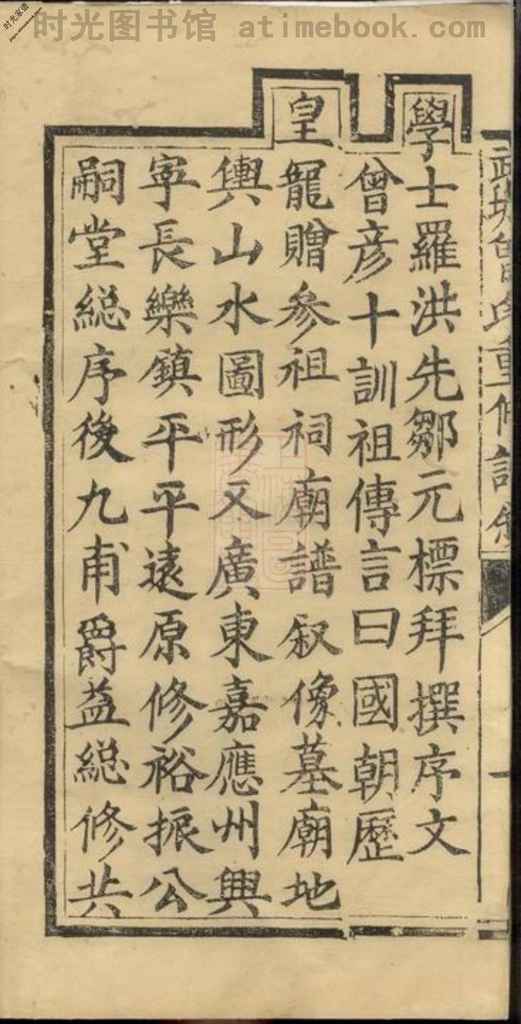 时光图书馆 atimebook.com
學士羅洪先鄒元標拜撰序文
曾彦十訓祖傳言曰國朝歷
皇寵贈參祖祠廟譜叙像墓廟地
輿山水圖形又廣東嘉應州興
寕長樂鎮平平遠原修裕振公
嗣堂総序後九甫爵益総修共